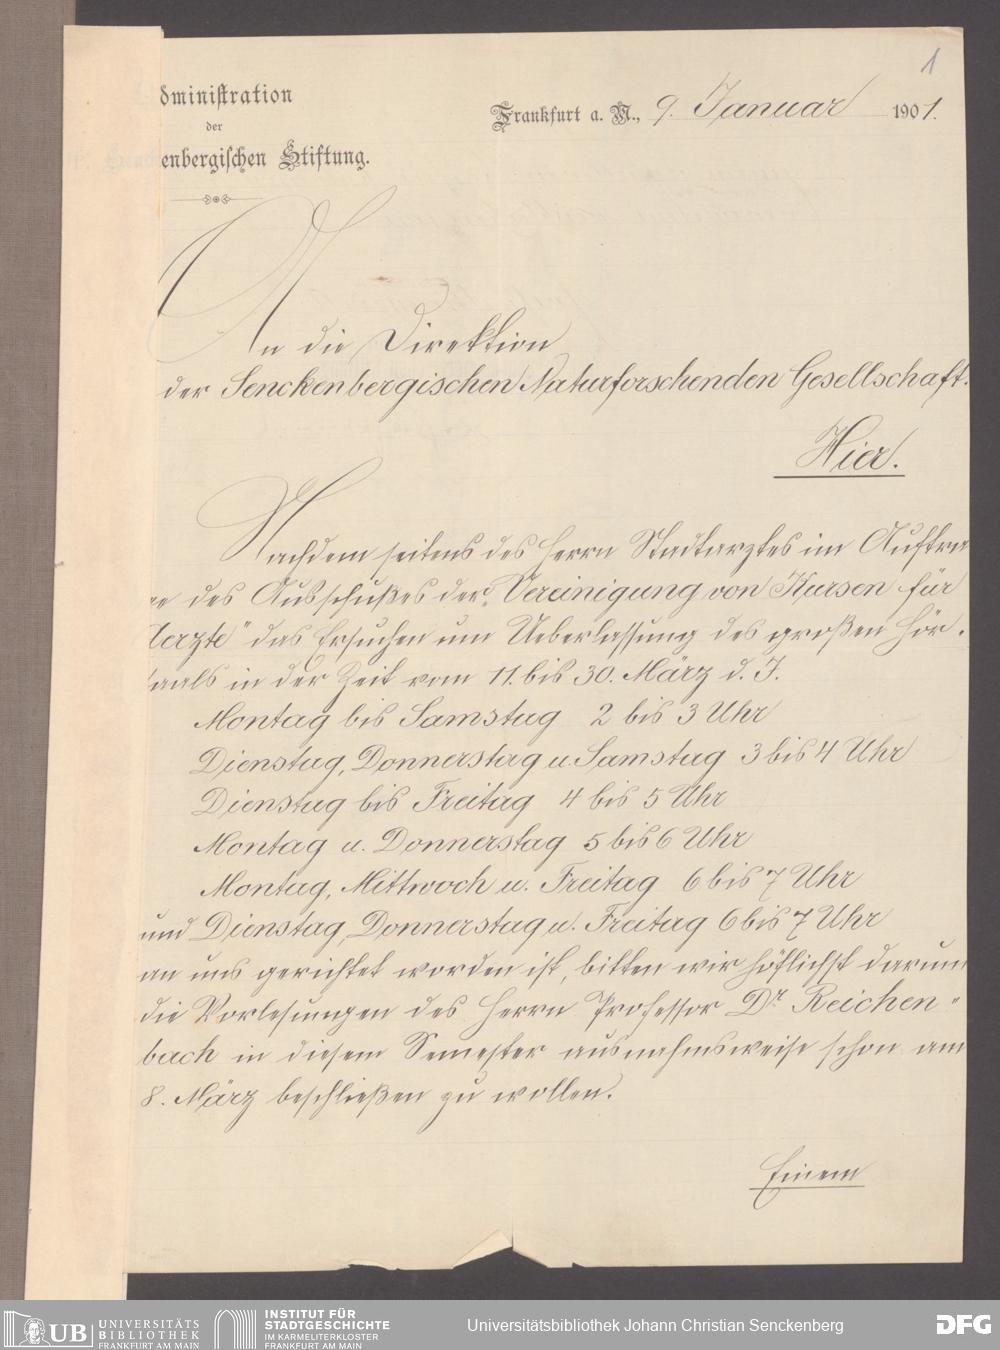 1
dministration
der
Senckenbergischen Stiftung.
Frankfurt a. M., 9. Januar 1901.
An die Direktion
der Senckenbergischen Naturforschenden Gesellschaft.
Hier.
Nachdem seitens des Herrn Stadtarztes im Auftra
ge des Ausschußes der „Vereinigung von Kursen für
Aerzte" das Ersuchen um Ueberlassung des großen Hör-
saals in der Zeit vom 11. bis 30. März d. J.
Montag bis Samstag 2 bis 3 Uhr
Dienstag, Donnerstag u. Samstag 3 bis 4 Uhr
Dienstag bis Freitag 4 bis 5 Uhr
Montag u. Donnerstag 5 bis 6 Uhr
Montag, Mittwoch u. Freitag 6 bis 7 Uhr
und Dienstag, Donnerstag u. Freitag 6 bis 7 Uhr
an uns gerichtet worden ist, bitten wir höflichst darum
die Vorlesungen des Herrn Professor Dr Reichen-
bach in diesem Semester ausnahmsweise schon am
8. März beschließen zu wollen.
Einem
UB UNIVERSITÄTS
BIBLIOTHEK
FRANKFURT AM MAIN
INSTITUT FÜR
STADTGESCHICHTE
IM KARMELITERKLOSTER
FRANKFURT AM MAIN
Universitätsbibliothek Johann Christian Senckenberg
DFG